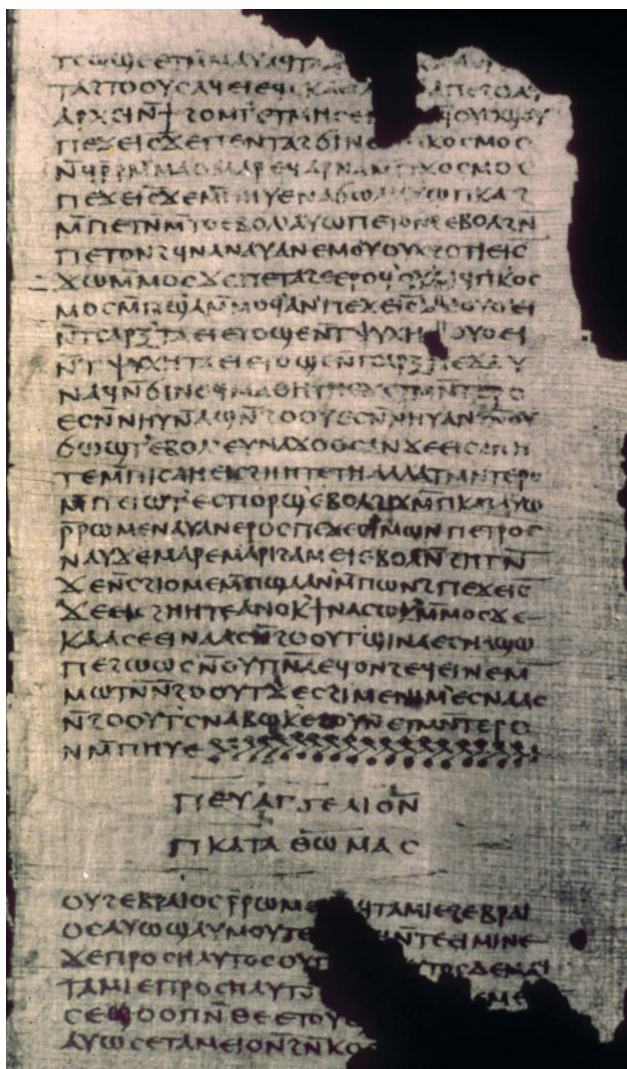 ⲧⲥⲱϣⲉ ⲉⲧⲙ̅ⲙⲁⲩ ⲁϥⲧⲁ
ⲧⲁϩⲧⲟⲟⲩⲥ ⲁϥⲉⲓ ⲉϥⲥⲕⲁ ⲁⲡⲉϩⲟ ⲁϥ
ⲁⲣⲭⲉⲓ ⲛ̅ϯ ϩⲟⲙⲧ ⲉⲧⲙⲏⲥⲉ ϥⲟⲩⲟϣⲟⲩ
ⲡⲉϫⲉ ⲓ̅ⲥ̅ ϫⲉ ⲡⲉⲛⲧⲁϩϭⲓⲛⲉ ⲡⲕⲟⲥⲙⲟⲥ
ⲛ̅ϥⲣ̅ ⲣⲙ̅ⲙⲁⲟ ⲙⲁⲣⲉϥⲁⲣⲛⲁ ⲙ̅ⲡⲕⲟⲥⲙⲟⲥ
ⲡⲉϫⲉ ⲓ̅ⲥ̅ ϫⲉ ⲙ̅ⲡⲏⲩⲉ ⲛⲁϭⲱⲗ ⲁⲩⲱ ⲡⲕⲁϩ
ⲙ̅ⲡⲉⲧⲛ̅ⲙ̅ⲧⲟ ⲉⲃⲟⲗ ⲁⲩⲱ ⲡⲉⲧⲟⲛϩ ⲉⲃⲟⲗ ϩⲛ̅
ⲡⲉⲧⲟⲛϩ ϥⲛⲁⲛⲁⲩ ⲁⲛ ⲉⲙⲟⲩ ⲟⲩⲭ ϩⲟⲧⲓ ⲉⲓ̅ⲥ̅
ϫⲱ ⲙ̅ⲙⲟⲥ ϫⲉ ⲡⲉⲧⲁϩⲉ ⲉⲣⲟϥ ⲟⲩⲁⲁϥ ⲡⲕⲟⲥ
ⲙⲟⲥ ⲙ̅ⲡϣⲁ ⲙ̅ⲙⲟϥ ⲁⲛ ⲡⲉϫⲉ ⲓ̅ⲥ̅ ϫⲉ ⲟⲩⲟⲉⲓ
ⲛ̅ⲧⲥⲁⲣⲝ ⲧⲁⲉⲓ ⲉⲧⲟϣⲉ ⲛ̅ⲧⲯⲩⲭⲏ ⲟⲩⲟⲉⲓ
ⲛ̅ⲧⲯⲩⲭⲏ ⲧⲁⲉⲓ ⲉⲧⲟϣⲉ ⲛ̅ⲧⲥⲁⲣⲝ ⲡⲉϫⲁⲩ
ⲛⲁϥ ⲛ̅ϭⲓ ⲛⲉϥⲙⲁⲑⲏⲧⲏⲥ ϫⲉ ⲧⲙⲛ̅ⲧⲉⲣⲟ
ⲉⲥⲛ̅ⲛⲏⲩ ⲛ̅ⲁϣ ⲛ̅ϩⲟⲟⲩ ⲉⲥⲛ̅ⲛⲏⲩ ⲁⲛ ϩⲛ̅ ⲟⲩ
ϭⲱϣⲧ ⲉⲃⲟⲗ ⲉⲩⲛⲁϫⲟⲟⲥ ⲁⲛ ϫⲉ ⲉⲓⲥϩⲏⲏ
ⲧⲉ ⲙ̅ⲡⲓⲥⲁ ⲏ ⲉⲓⲥϩⲏⲏⲧⲉ ⲧⲏ ⲁⲗⲗⲁ ⲧⲙⲛ̅ⲧⲉⲣⲟ
ⲙ̅ⲡⲉⲓⲱⲧ ⲉⲥⲡⲟⲣϣ ⲉⲃⲟⲗ ϩⲓϫⲙ̅ ⲡⲕⲁϩ ⲁⲩⲱ
ⲣ̅ⲣⲱⲙⲉ ⲛⲁⲩ ⲁⲛ ⲉⲣⲟⲥ ⲡⲉϫⲉ ⲥⲓⲙⲱⲛ ⲡⲉⲧⲣⲟⲥ
ⲛⲁⲩ ϫⲉ ⲙⲁⲣⲉ ⲙⲁⲣⲓϩⲁⲙ ⲉⲓ ⲉⲃⲟⲗ ⲛ̅ϩⲏⲧⲛ̅
ϫⲉ ⲛ̅ⲥϩⲓⲟⲙⲉ ⲙ̅ⲡϣⲁ ⲁⲛ ⲙ̅ⲡⲱⲛϩ ⲡⲉϫⲉ ⲓ̅ⲥ̅
ϫⲉ ⲉⲓⲥϩⲏⲏⲧⲉ ⲁⲛⲟⲕ ϯⲛⲁⲥⲱⲕ ⲙ̅ⲙⲟⲥ ϫⲉ
ⲕⲁⲁⲥ ⲉⲉⲓⲛⲁⲁⲥ ⲛ̅ϩⲟⲟⲩⲧ ϣⲓⲛⲁ ⲉⲥⲛⲁϣⲱ
ⲡⲉ ϩⲱⲱⲥ ⲛ̅ⲟⲩⲡ̅ⲛ̅ⲁ̅ ⲉϥⲟⲛϩ ⲉϥⲉⲓⲛⲉ ⲙ̅
ⲙⲱⲧⲛ̅ ⲛ̅ϩⲟⲟⲩⲧ ϫⲉ ⲥϩⲓⲙⲉ ⲛⲓⲙ ⲉⲥⲛⲁⲁⲥ
ⲛ̅ϩⲟⲟⲩⲧ ⲥⲛⲁⲃⲱⲕ ⲉϩⲟⲩⲛ ⲉⲧⲙⲛ̅ⲧⲉⲣⲟ
ⲛⲙ̅ⲡⲏⲩⲉ
ⲡⲉⲩⲁⲅⲅⲉⲗⲓⲟⲛ
ⲡⲕⲁⲧⲁ ⲑⲱⲙⲁⲥ
ⲟⲩϩⲉⲃⲣⲁⲓⲟⲥ ⲣ̅ⲣⲱⲙⲉ ϥⲧⲁⲙⲓⲉ ϩⲉⲃⲣⲁⲓ
ⲟⲥ ⲁⲩⲱ ϣⲁⲩⲙⲟⲩⲧⲉ ⲛ̅ⲧⲉⲉⲓⲙⲓⲛⲉ
ϫⲉ ⲡⲣⲟⲥⲏⲗⲩⲧⲟⲥ ⲟⲩⲡ ⲩⲧⲟⲥ ⲇⲉ ⲙⲁϥ
ⲧⲁⲙⲓⲉ ⲡⲣⲟⲥⲏⲗⲩⲧⲟⲥ ⲙⲉ
ⲥⲉϣⲟⲟⲡ ⲛ̅ⲑⲉ ⲉⲧⲟⲩ
ⲁⲩⲱ ⲥⲉⲧⲁⲙⲉⲓⲟ ⲛ̅ϩⲛ̅ⲕⲟⲟⲩⲉ